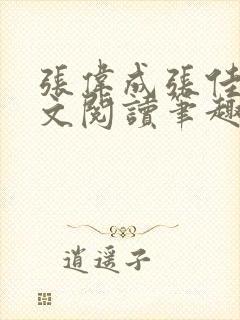 張偉成張佳
文閱讀筆趣
逍遥子